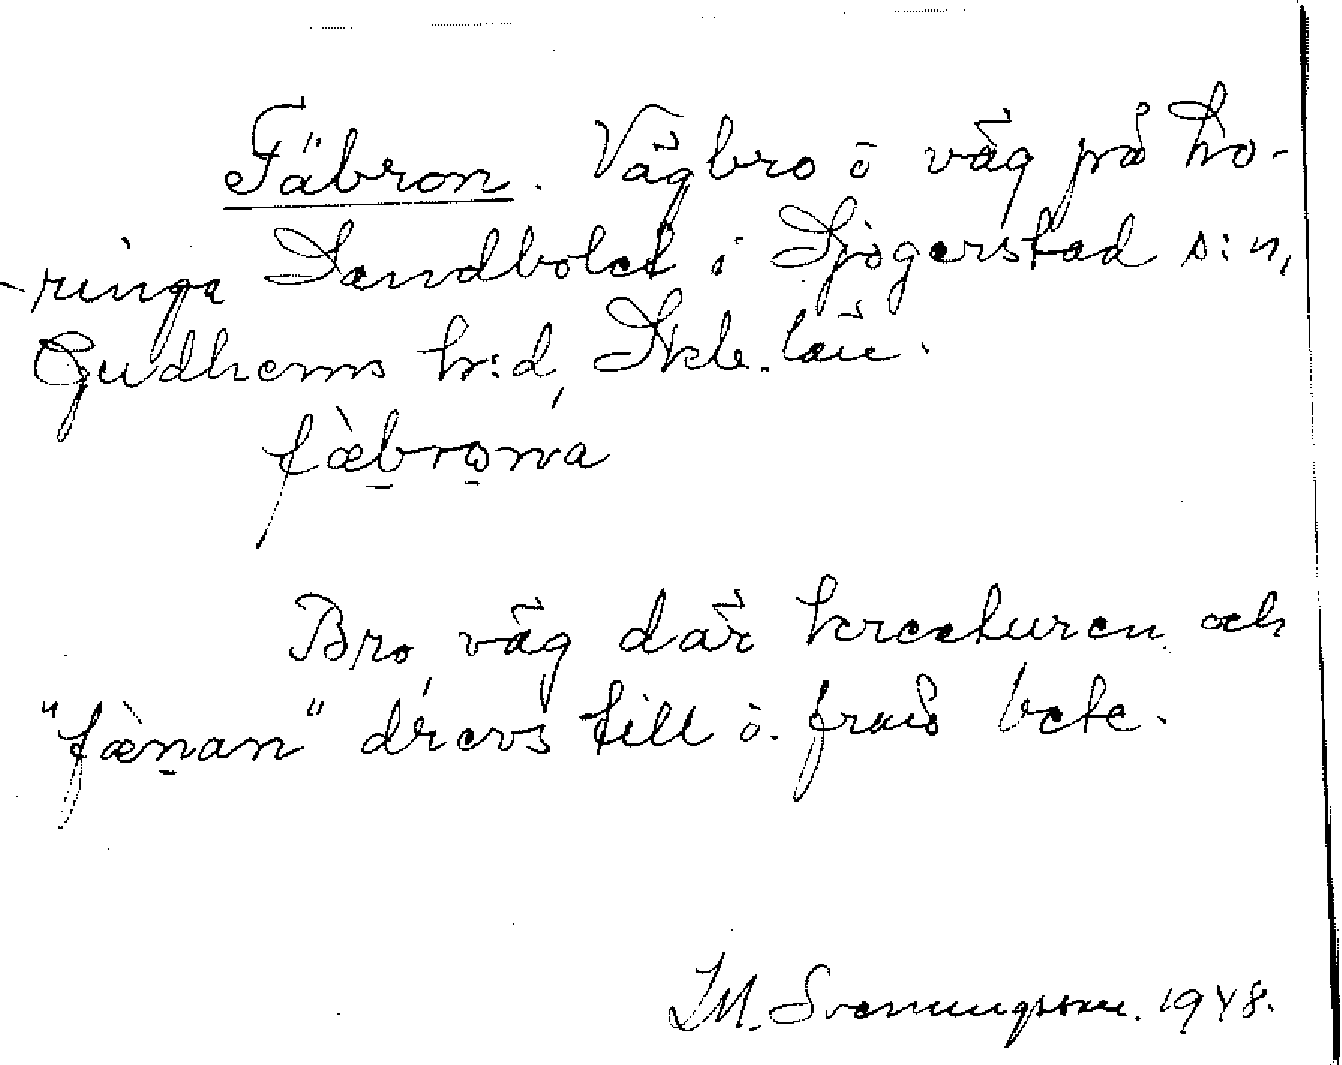 Fäbron. Vägbro o väg på Ho-
-ringa Sandbolet i Sjögerstad s:n,
Gudhems h:d, Skb. län.
fæ̀brona
Bro, väg där kreaturen och
"fæ̀nan" drevs till o. från bete.
I.M. Svenungsson. 1948.